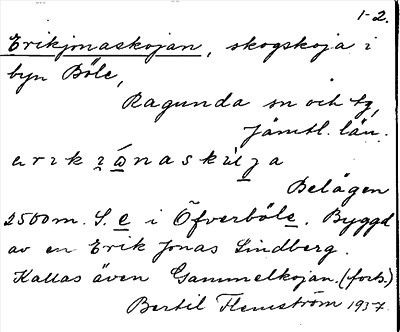 1-2.
Erikjonaskojan, skogskoja i
byn Böle,
Ragunda sn och tg,
Jämtl. län.
Belägen
2500 m. S. e i Öfverböle. Byggd
av en Erik Jonas Lindberg.
Kallas även Gammelkojan. (forts.)
Bertil Flemström 1937.